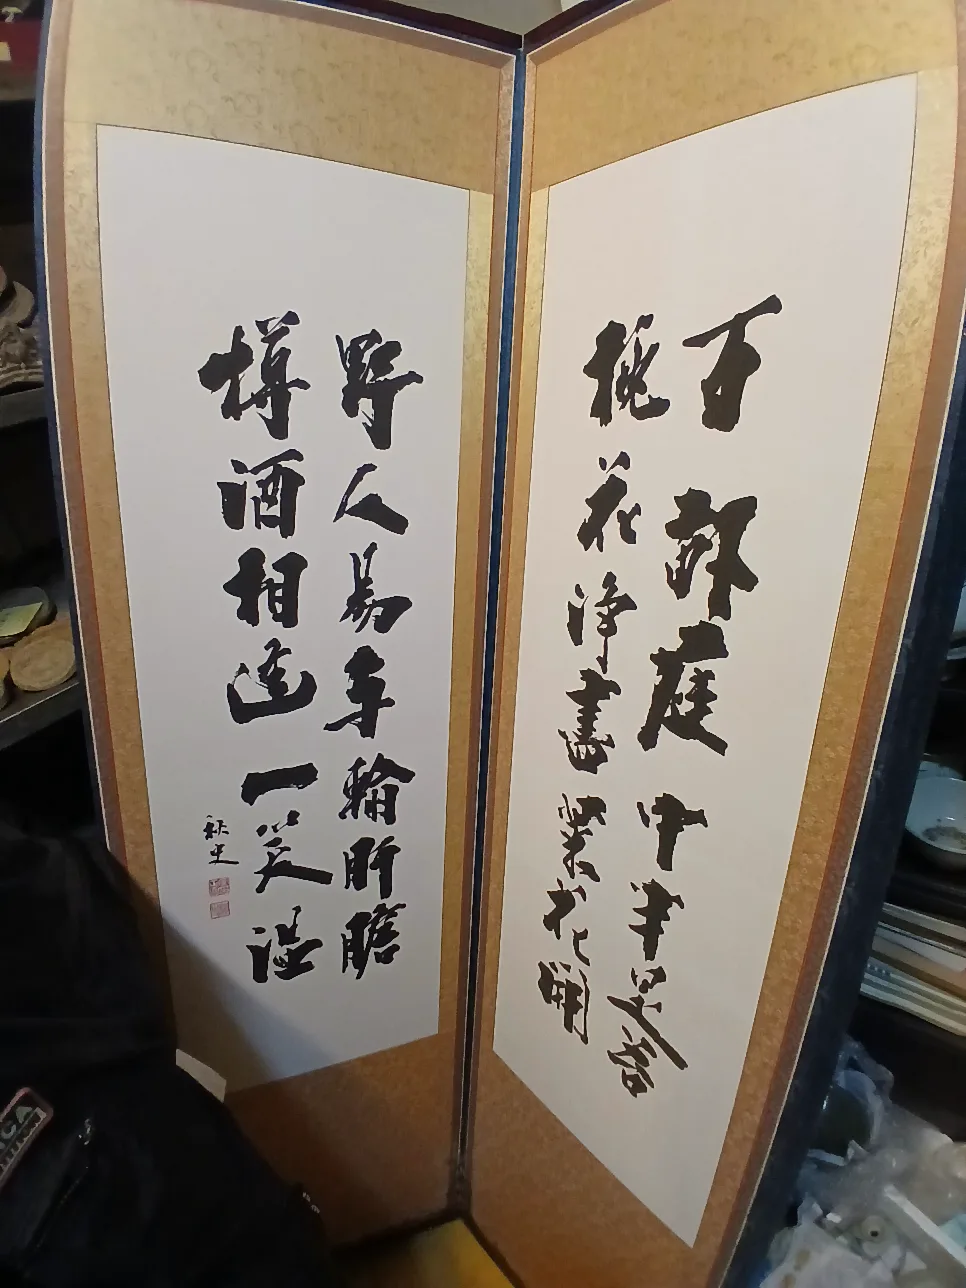 百畝庭中半是苔
桃花淨盡菜花開
野人易与輸肝膽
樽酒相逢一笑溫
秋史